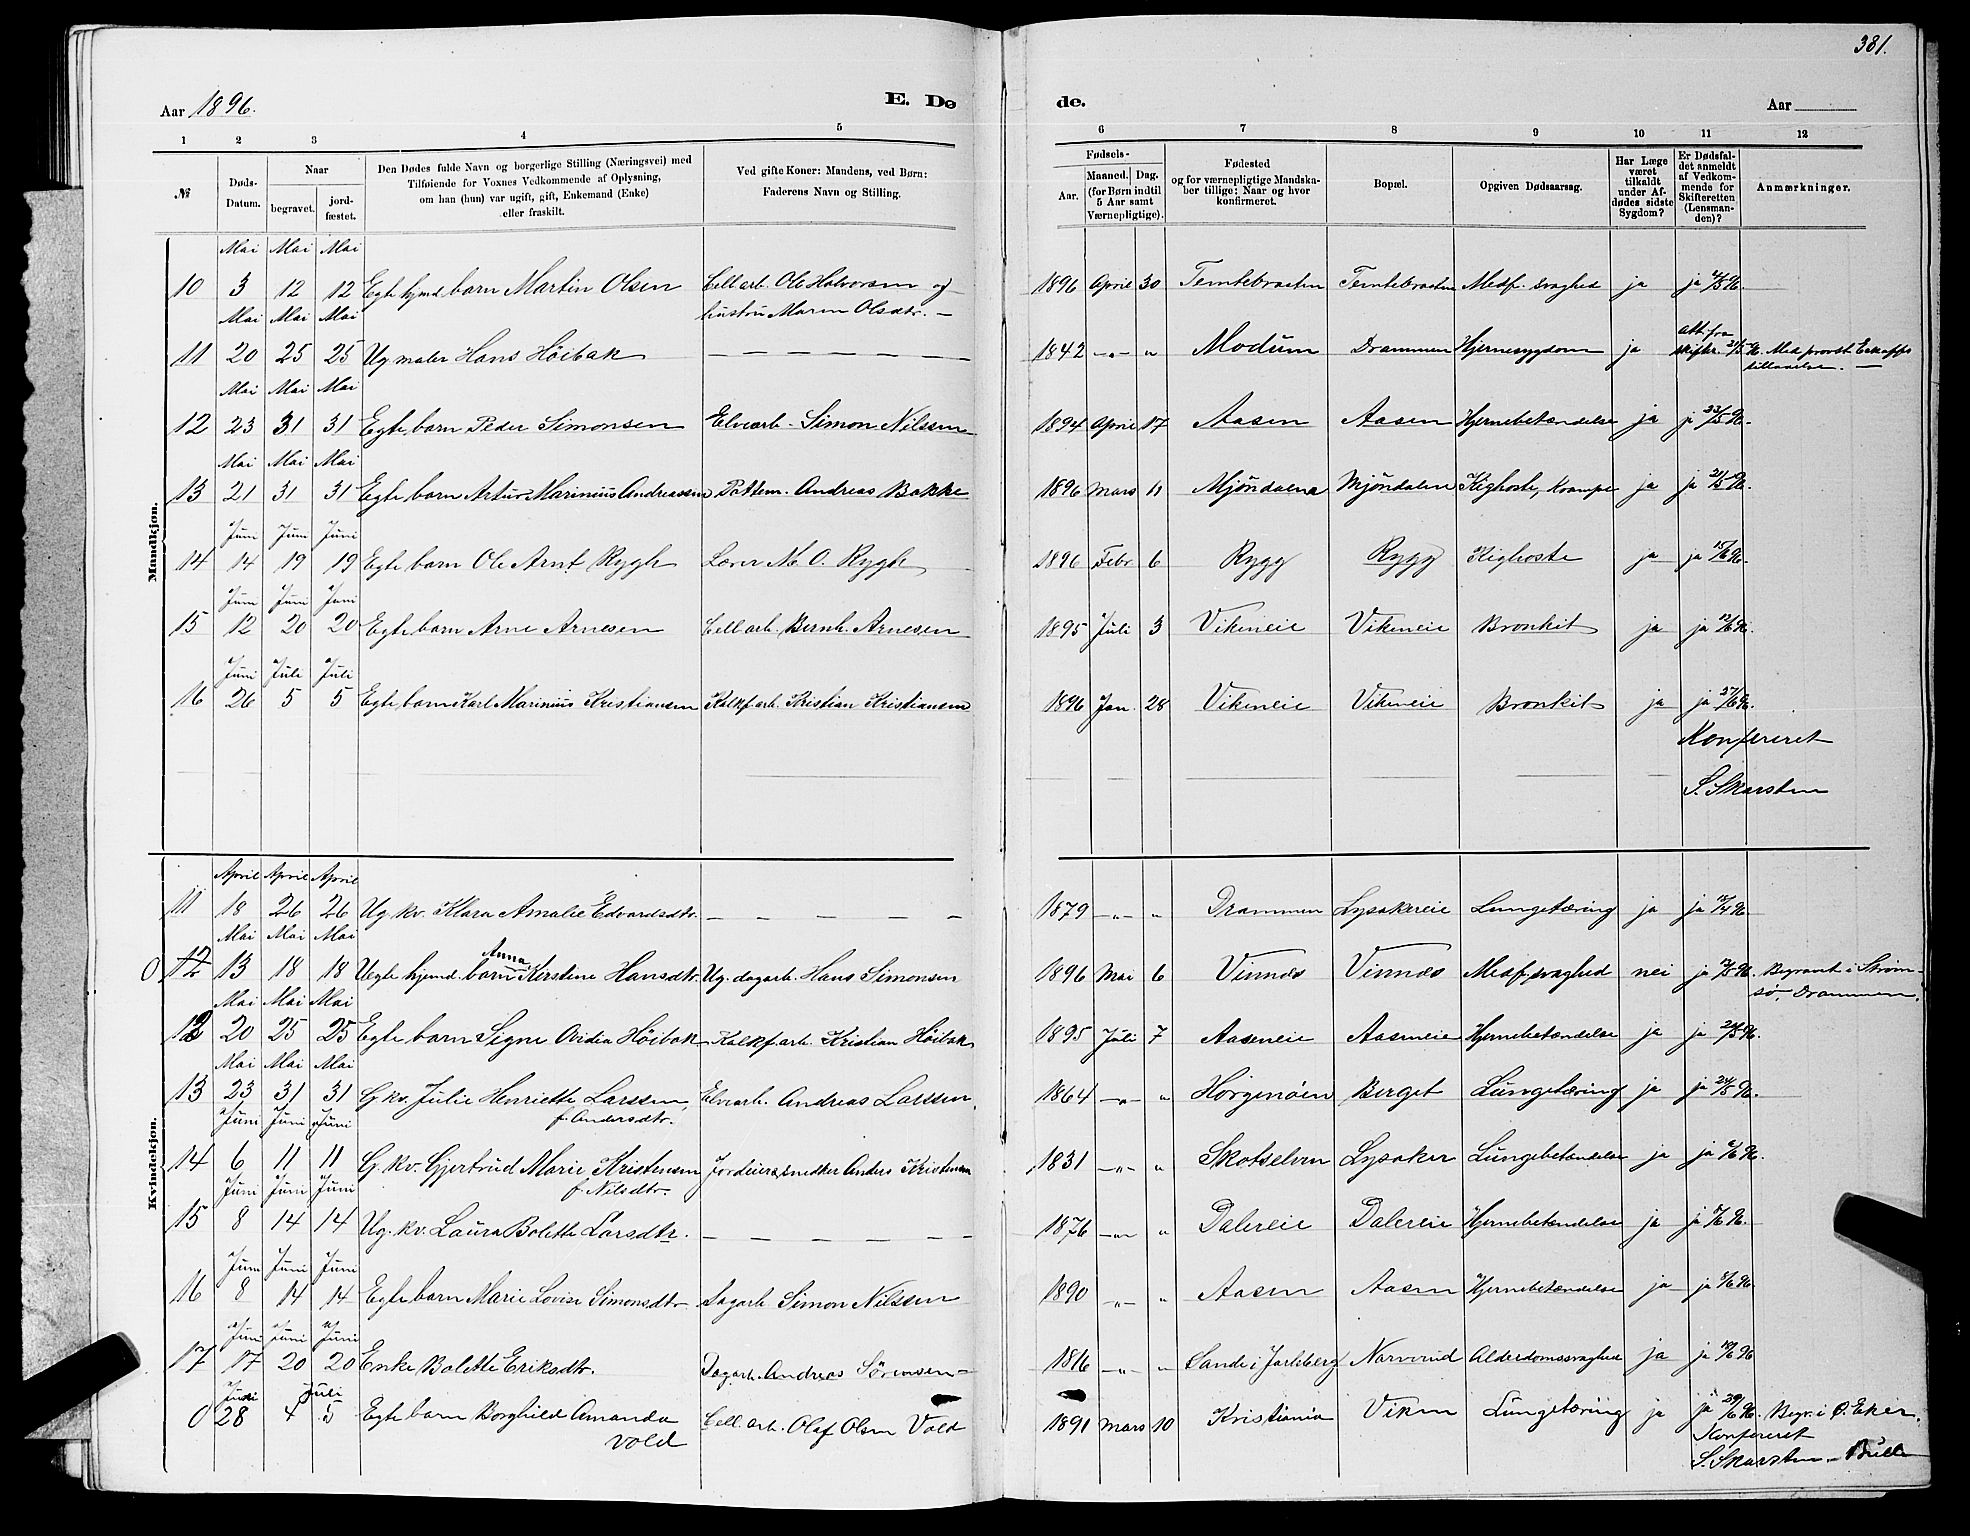 381.
Aar 1896. E. Dø de. Aar
1 2 3 4 5 6 7 8 9 10 11 12
№
Døds-Datum.
Naar
begravet. jordfæstet.
Den Dødes fulde Navn og borgerlige Stilling (Næringsvei) med
Tilføiende for Voxnes Vedkommende af Oplysning,
om han (hun) var ugift, gift, Enkemand (Enke)
eller fraskilt.
Ved gifte Koner: Mandens, ved Børn:
Faderens Navn og Stilling.
Fødsels-
Aar. Maaned. Dag.
(for Børn indtil
5 Aar samt
Værnepligtige).
Fødested
og for værnepligtige Mandska-
ber tillige: Naar og hvor
konfirmeret.
Bopæl.
Opgiven Dødsaarsag.
Har Læge
været
tilkaldt
under Af-
dødes sidste
Sygdom?
Er Dødsfal-
det anmeldt
af Vedkom-
mende for
Skifteretten
(Lensman-
den)?
Anmærkninger.
Mandkjøn.
Mai Mai Mai
10 3 12 12 Egte hjmd. barn Martin Olsen Cell arb. Ole Halvorsen og 1896 April 30 Temtebraaten Temtebraaten Medf. svaghed ja ja 4/5 96.
hustru Maren Olsdtr. —
Mai Mai Mai
11 20 25 25 Ug maler Hans Höibak — — — — — 1842 —„— „ Modum Drammen Hjernesygdom ja att. fra skifter. 21/5 96. Med provst
tilladelse. —
Mai Mai Mai
12 23 31 31 Egte barn Peder Simonsen Elvearb. Simon Nilssen 1894 April 17 Aasen Aasen Hjernebetændelse ja ja 23/5 96.
Mai Mai Mai
13 21 31 31 Egte barn Artur Marinius Andreassen Pottem. Andreas Bakke 1896 Mars 11 Mjöndalen Mjöndalen Kighoste, Krampe ja ja 21/5 96.
Juni Juni Juni
14 14 19 19 Egte barn Ole Arnt Rygh Lærer M. O. Rygh 1896 Febr 6 Rygg Rygg Kighoste ja ja 15/6 96.
Juni Juni Juni
15 12 20 20 Egte barn Arne Arnesen Cell arb. Bernh. Arnesen 1895 Juli 3 Vikeneie Vikeneie Bronkit ja ja 12/6 96.
Juni Juli Juli
16 26 5 5 Egte barn Karl Marinius Kristiansen Kalkf. arb. Kristian Kristiansen 1896 Jan. 28 Vikeneie Vikeneie Bronkit ja ja 27/6 96.
Konfereret
S. Skarsten
Kvindekjøn.
April April April
11 18 26 26 Ug. kv. Klara Amalie Edvardsdtr. — — — — — 1879 —„— „ Drammen Lysakereie Lungetæring ja ja 18/4 96
Mai Mai Mai
0 12 13 18 18 Uegte hjemd. barn Anna Kirstine Hansdtr. Ug. dagarb. Hans Simonsen 1896 Mai 6 Vinnæs Vinnæs Medf. svaghed nei ja 96. Begravet i Strøm-
sö, Drammen.
Mai Mai Mai
12 20 25 25 Egte barn Signe Ovidia Höibak Kalkf. arb. Kristian Höibak 1895 Juli 7 Aaseneie Aaseneie Hjernebetændelse ja ja 96.
Mai Mai Mai
13 23 31 31 G. kv. Julie Henriette Larssen, Elvearb. Andreas Larssen. 1864 —„— „ Horgenöien Berget Lungetæring ja ja 24/5 96.
f. Andersdtr.
Juni Juni Juni
14 6 11 11 G. kv. Gjertrud Marie Kristensen Jordeier, snedker Anders Kristensen 1831 —„— „ Skotselven Lysaker Lungebetændelse ja ja 96.
f. Nilsdtr.
Juni Juni Juni
15 8 14 14 Ug. kv. Laura Bolette Larsdtr. — — — — — — 1876 —„— „ Dalereie Dalereie Hjernebetændelse ja ja 96.
Juni Juni Juni
16 8 14 14 Egte barn Marie Lovise Simonsdtr. Dagarb. Simon Nilssen 1890 —„— „ Aasen Aasen Hjernebetændelse ja ja 96.
Juni Juni Juni
17 17 20 20 Enke Bolette Eriksdtr. Dagarb. Andreas Sörensen 1816 —„— „ Sande i Jarlsberg Narverud Alderdomssvaghed ja ja 96
Juni Juli
0 28 4 5 Egte barn Borghild Amanda Cell. arb. Olaf Olsen Vold 1891 Mars 10 Kristiania Viken Lungetæring ja ja 29/6 96. Begr. i Ø. Eker.
Vold
Konfereret
S. Skarsten